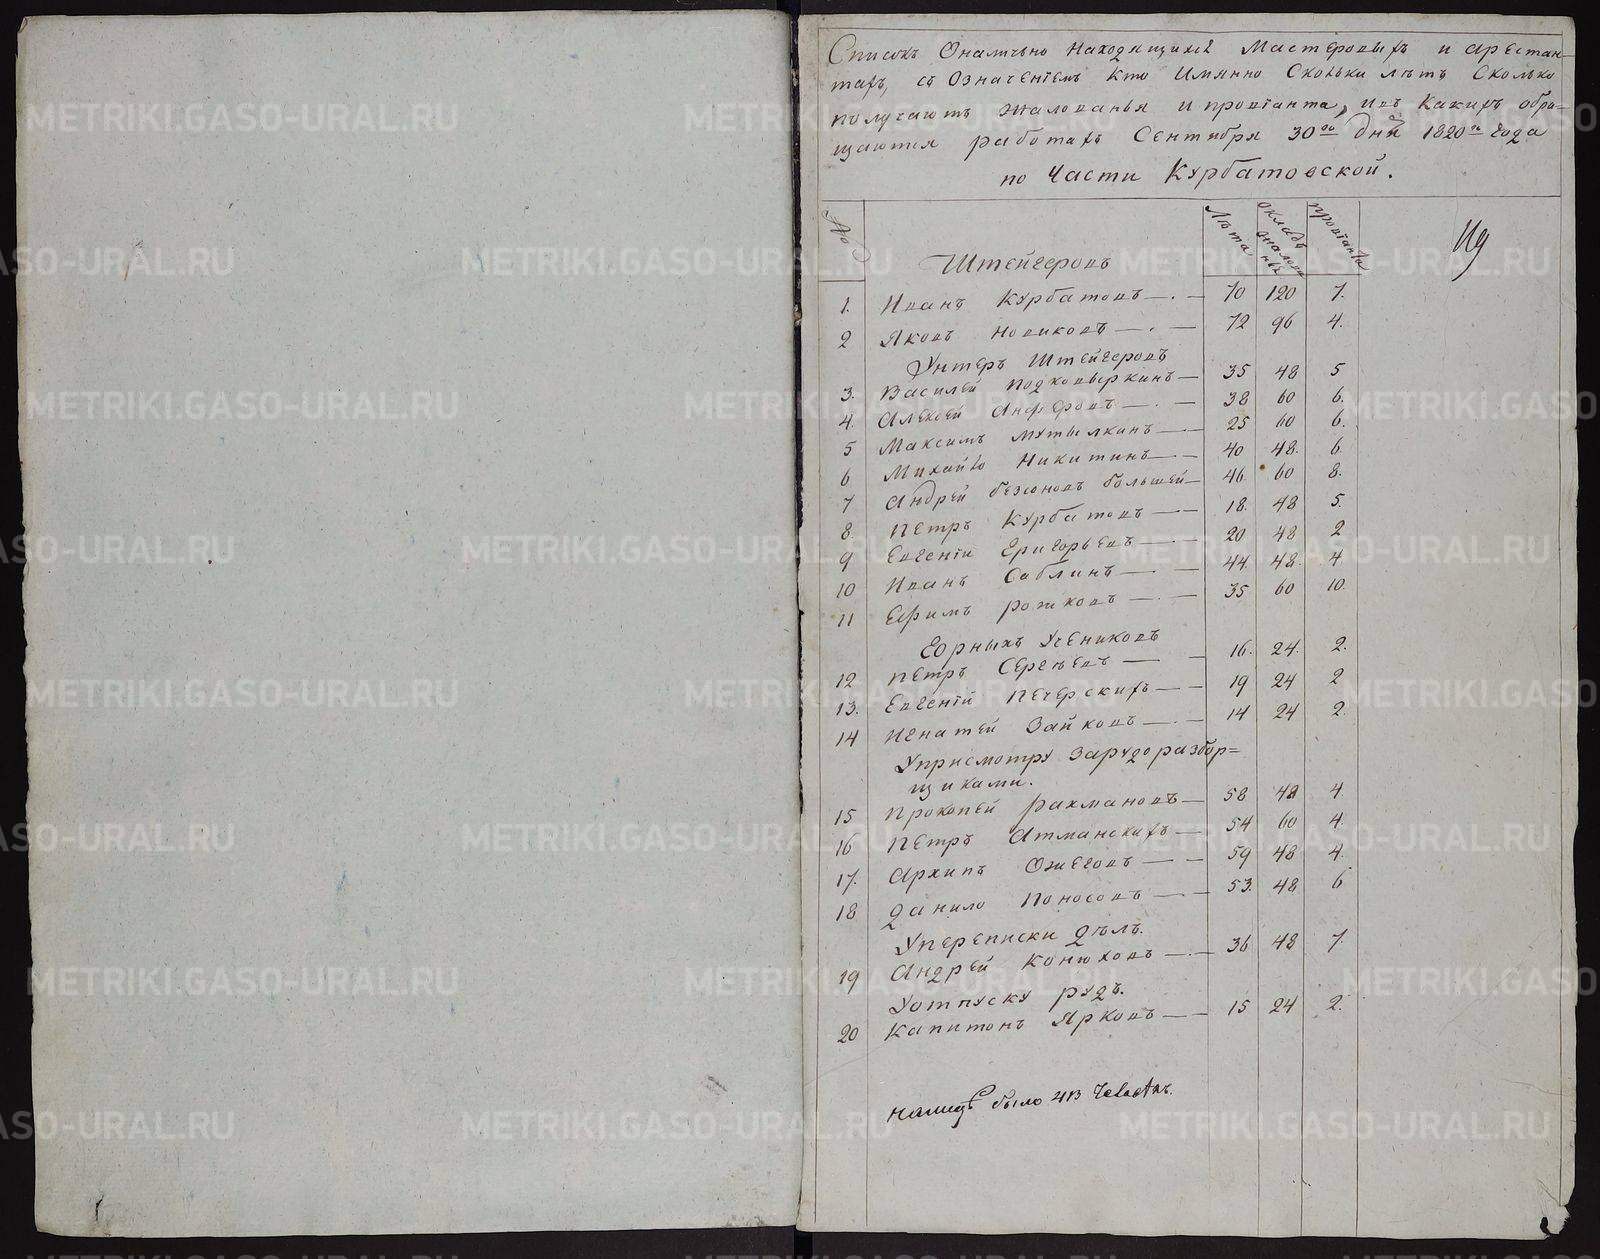 Списокъ Оналично находящихся Мастеровыхъ и арестан-
тахъ, съ Означенiемъ кто имянно Сколька лѣтъ Сколько
получаютъ жалованья и провiанта, ивъ Какихъ обра=
щаются работахъ Сентября 30го дня 1820го года
по Части Курбатовской.
№ Штейгеровъ Лѣта окладъ жалованья провiанта
1. Иванъ Курбатовъ 70 120 7.
2 Яковъ Новиковъ 72 96 4.
Унтеръ Штейгеровъ
3. Василей Подковыркинъ 35 48 5
4. Алексей Анферовъ 38 60 6.
5 Максимъ Мутылкинъ 25 60 6.
6 Михайло Никитинъ 40 48. 6
7 Андрей безсоновъ большей 46. 60 8.
8. Петръ Курбатовъ 18. 48 5.
9 Евгенiй Григорьевъ 20 48 2
10 Иванъ Саблинъ 44. 48. 4
11 Ефимъ рожковъ 35 60 10.
Горныхъ Учениковъ
12 Петръ Сергѣевъ 16. 24. 2.
13. Евгенiй Печерскихъ 19 24 2
14 Игнатей Зайковъ 14 24 2.
Уприсмотру Зарудоразбор=
щиками.
15 Прокопей рахмановъ 58 48 4
16 Петръ Атманскихъ 54 60 4.
17. Архипъ Ожеговъ 59 48 4.
18 Данило Поносовъ 53. 48 6
Упереписки дѣлъ.
19 Андрей Конюховъ 36 48 7.
Уотпуску рудъ.
20 Капитонъ Ярковъ 15 24 2.
было 413